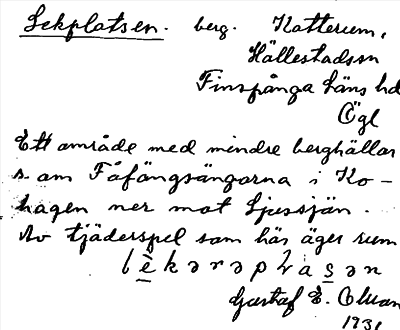 Lekplatsen. berg. Katterum,
Hällestadssn
Finspånga läns hd
Ögl
Ett område med mindre berghällar
s. om Fåfängsängarna i Ko-
hagen ner mot Ljussjön.
Av tjäderspel som här äger rum
Gustaf E.
1931